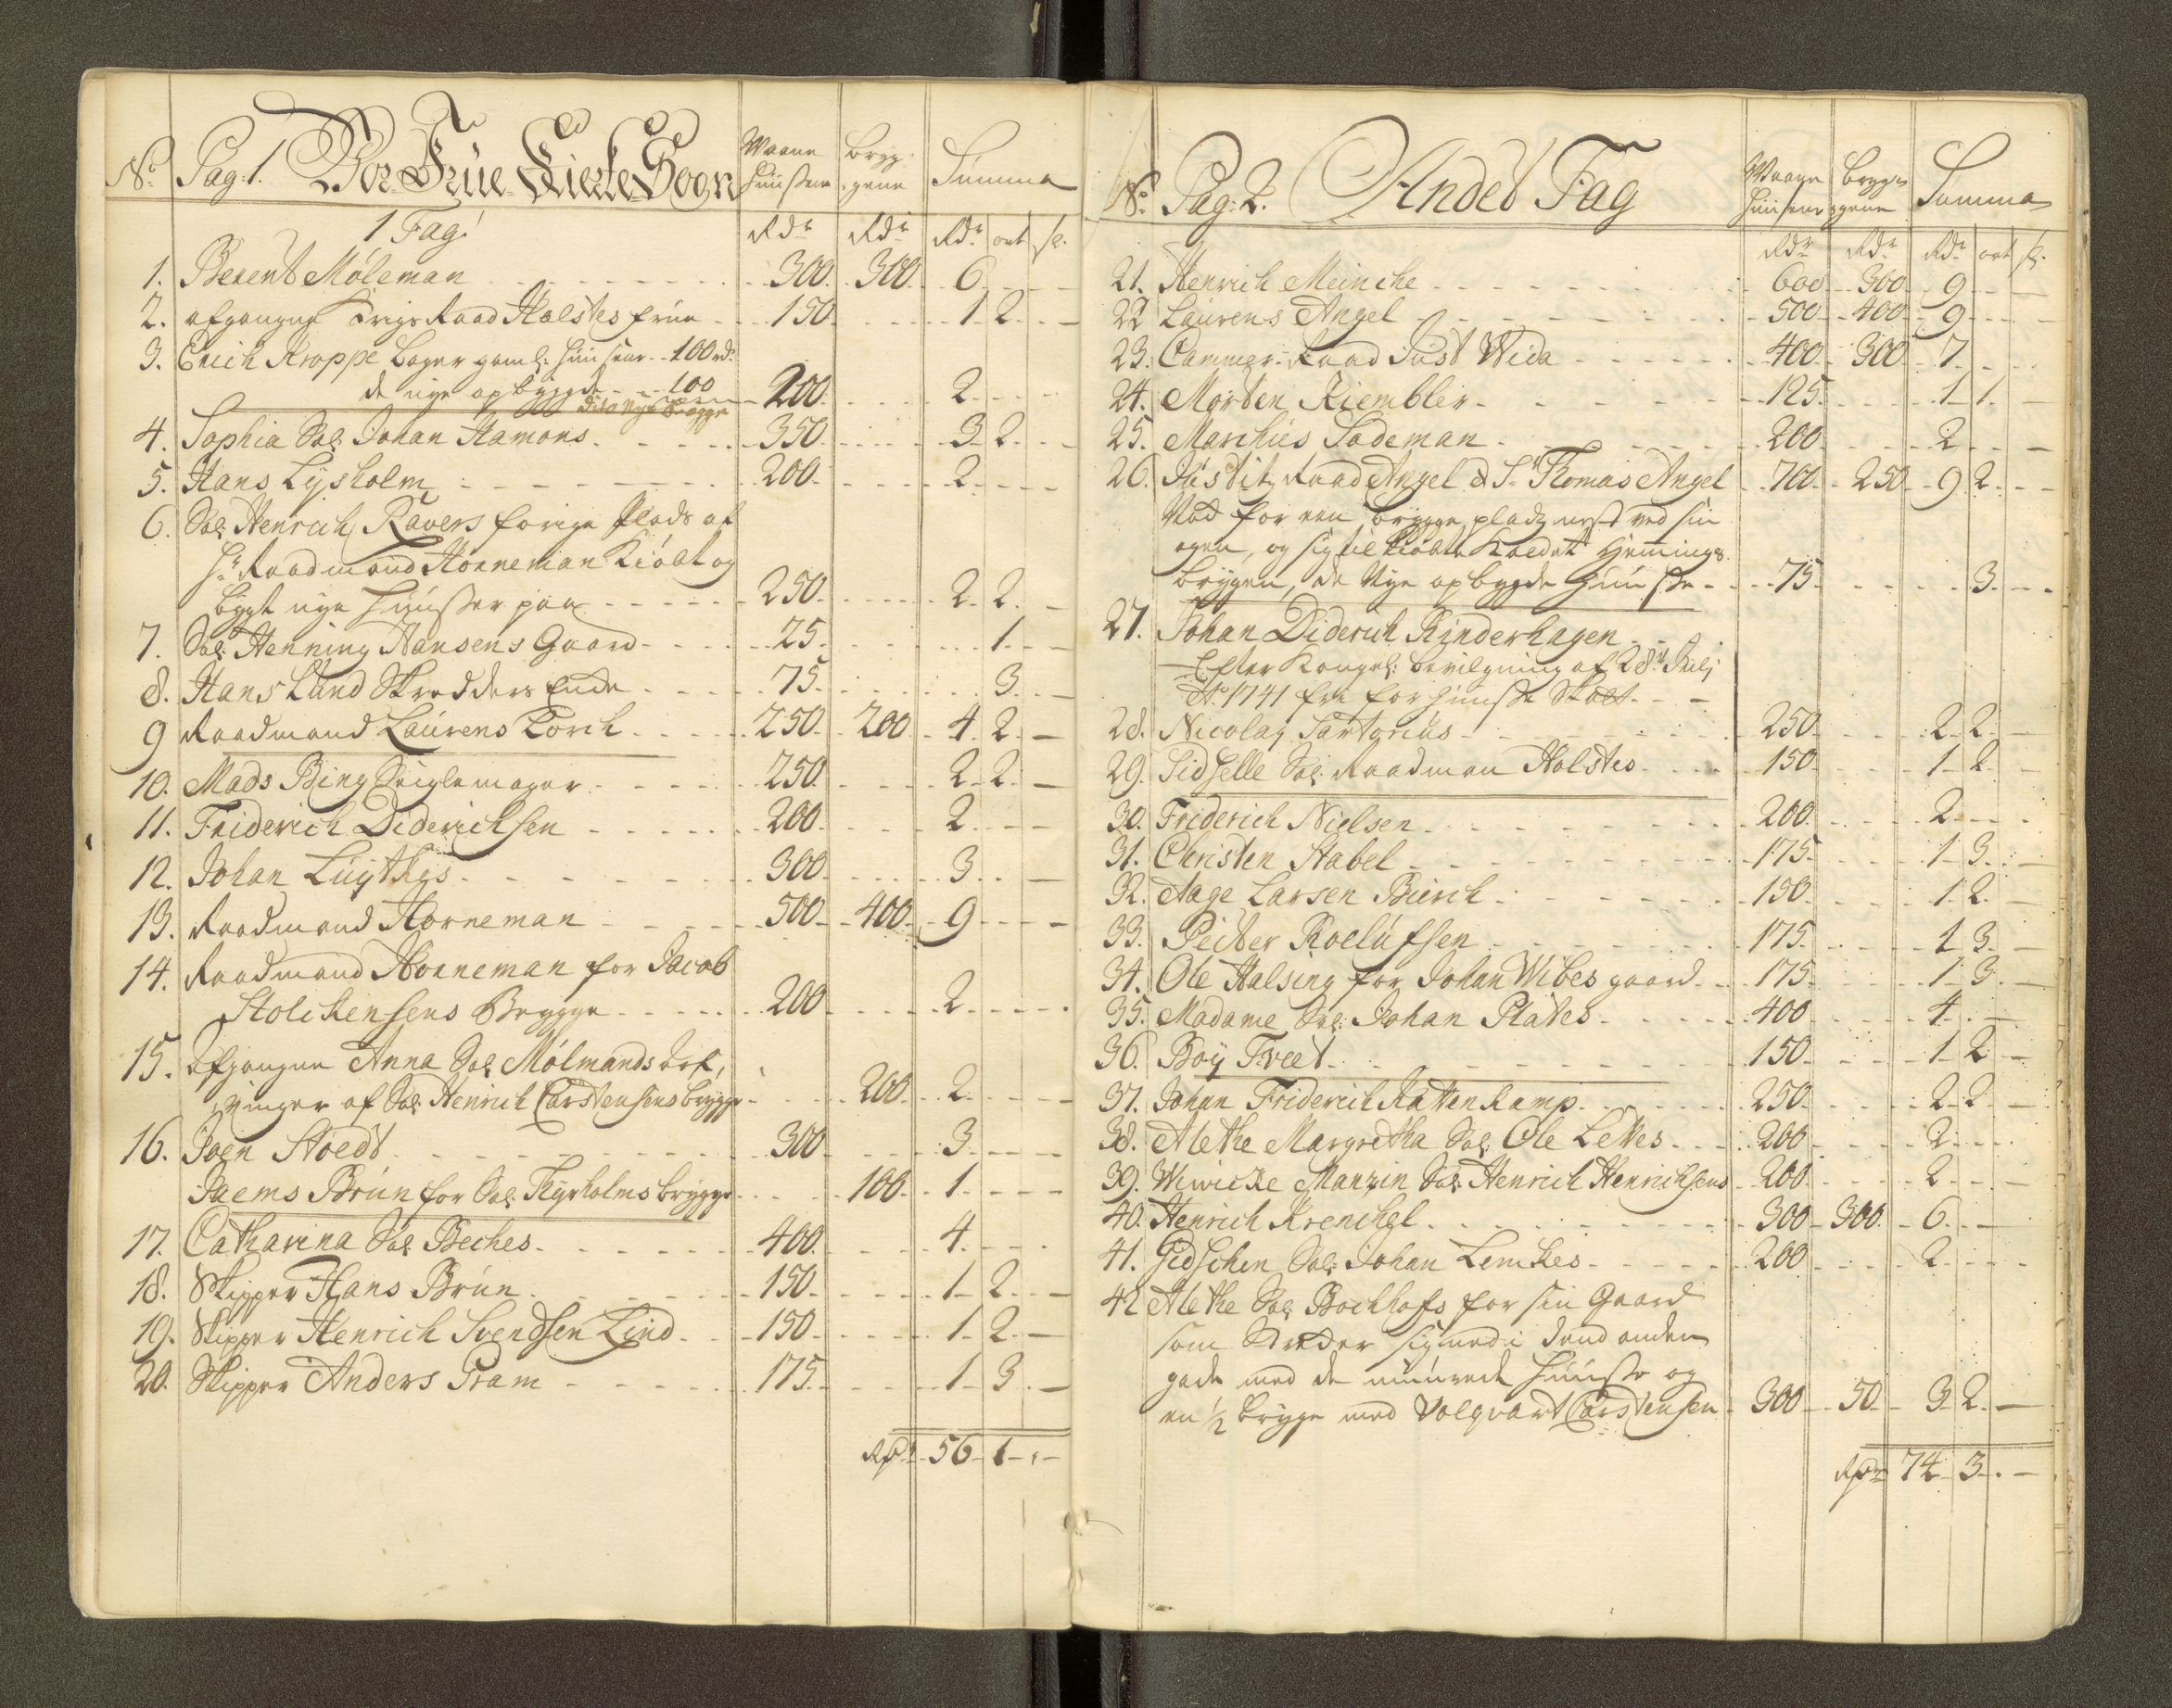 No. Pag: 1. Vor Früe Kirke Sogn Waane Brÿg- Summa
Huusene gene
1 Fag: Rdr Rdr Rdr ort sk.
1. Berent Møleman 300. 300. 6.
2. afgangne Krigs Raad Holstes früe 150. 1. 2.
3. Erich Kroppe Bager gaml: Huusene 100 rd:
de nye opbygde 100 200. 2.
dito nye Brygge
4. Sophia Sal: Johan Hamons. 350. 3. 2.
5. Hans Lysholm 200. 2.
6. Sal: Henrich Ravers forige Plads af
Hr. Raadmand Horneman Kiøbt og
bygt nye Huusser paa 250. 2. 2.
7. Sal: Henning Hansens Gaard 25. 1.
8. Hans Lund Skredders Enke 75. 3.
9 Raadmand Laurens Lorch 250. 200. 4. 2.
10. Mads Bing Seiglemager 250. 2. 2.
11. Friderich Diderichsen 200. 2.
12. Johan Lüythgs 300. 3.
13. Raadmand Horneman 500. 400. 9
14. Raadmand Horneman for Jacob
Stolckensens Brygge 200 2.
15. Afgangne Anna Sal: Mølmands Arf,
winger af Sal: Henrich Carstensens brygge 200. 2.
16. Joen Stoedt 300 3.
Jaems Brün for Sal: Thyrholms brygge 100. 1.
17. Catharina Sal: Beches. 400. 4.
18. Skipper Hans Brün. 150. 1. 2.
19. Skipper Henrich Svendsen Lind. 150. 1. 2.
20. Skipper Anders Pram 175. 1. 3.
Rdr 56. 1.
No. Pag: 2. Andet Fag Waane Brygn Summa
Huusene gene
Rdr Rdr Rdr ort sk.
21. Henrich Meincke 600 300 9
22 Laurens Angel 500 400 9
23. Cammer-Raad Just Wida 400 300 7.
24. Morten Kiembler 125. 1. 1.
25. Marchus Sodeman 200. 2.
26. Justit Raad Angel & Sr. Thomas Angel 700 250 9. 2.
Nod for een brygge plads nest ved sin
egen, og sig til kiøbte kaldet Hjemmings
bryggen, de nye opbygde Huusse 75. 3.
27. Johan Diderich Rinderhagen
Efter Kongel: bevilgning af 28d. Julj
Ao. 1741 frie for Huusse Skatt.
28. Nicolay Sartorius 250. 2. 2.
29. Sidselle Sal: Raadman Holstes 150. 1. 2.
30. Friderich Nielsen 200. 2.
31. Christen Stabel 175. 1. 3.
32. Aage Larsen Bierch 150. 1. 2.
33. Peiter Roelufsen 175. 1. 3.
34. Ole Halsing for Johan Wibes gaard 175. 1. 3.
35. Madame Sal: Johan Plates 400 4.
36. Boy Tveet. 150. 1. 2.
37. Johan Friderich Rattenkamp 250. 2. 2.
38. Alethe Margretha Sal: Ole Lettes 200 2.
39. Wiwicke Manzin Sal: Henrich Henrichsens 200 2.
40. Henrich Krenchel. 300 300. 6.
41. Gidschen Sal: Johan Lemkes 200 2.
42 Alethe Sal: Bochhofs for sin Gaard
som strecker sig ned i dend anden
gade med de muurede Huusse og
en 1/2 brygge med Volqvart Carstensen 300 50 3. 2.
Rdr 74. 3.